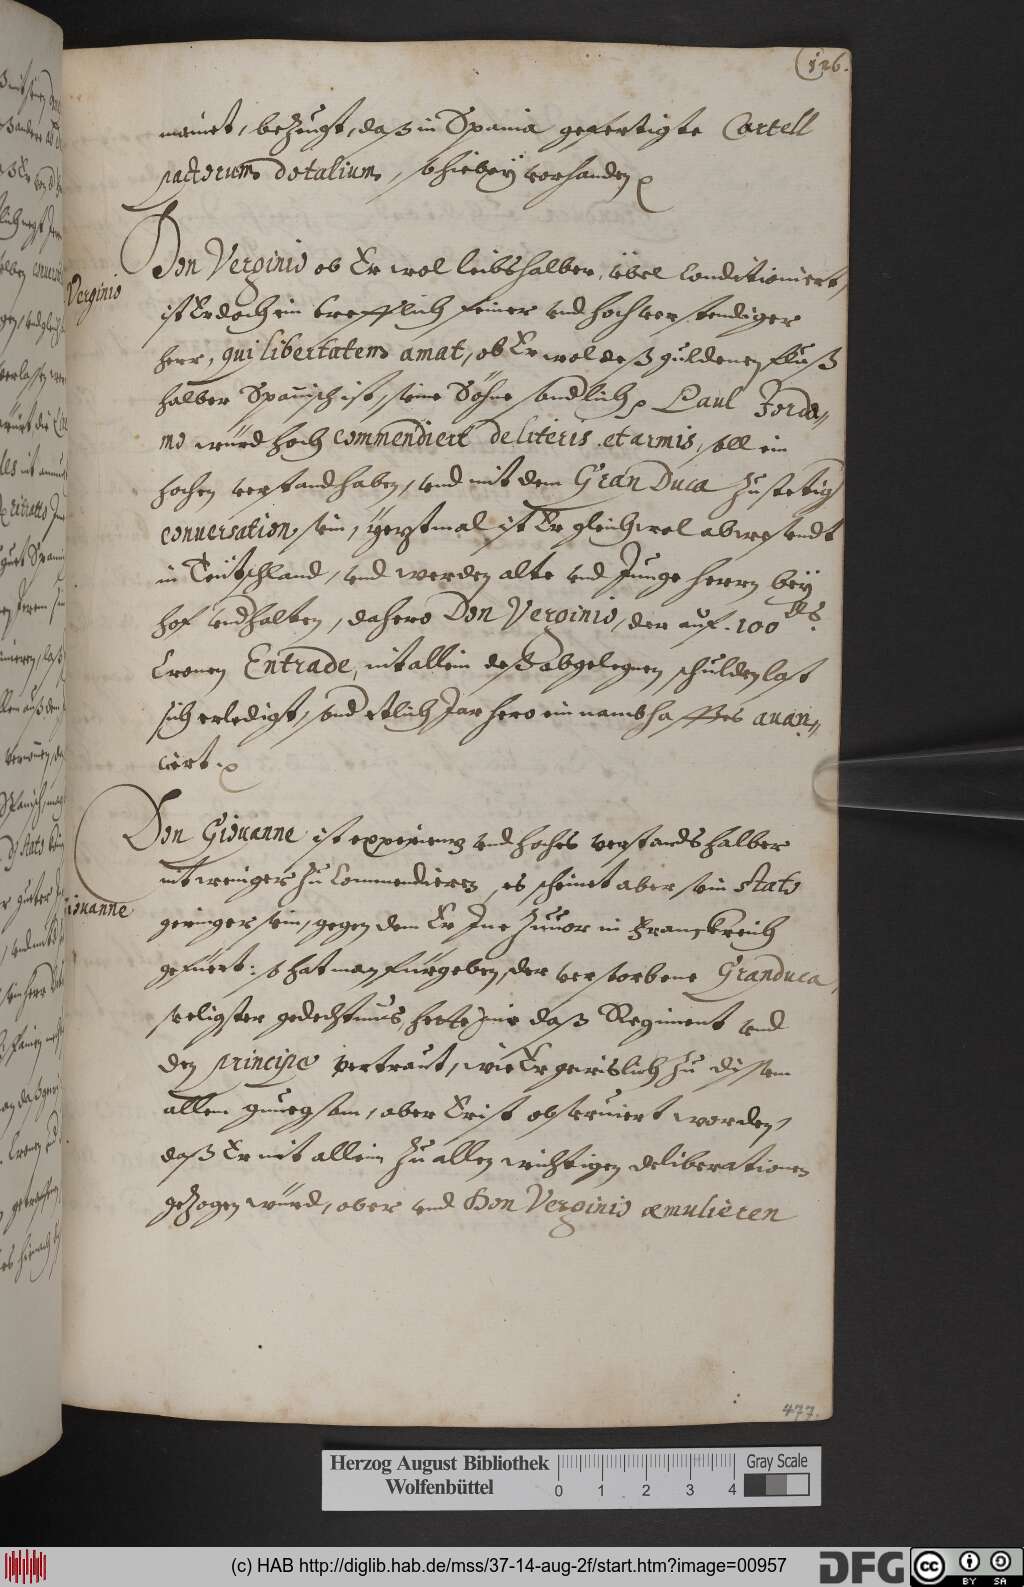 126.
mainet, bezeugt, daß in Spania gefertigte Cartell
pactorum dotalium, so hiebey vorhanden
Verginio
Don Verginio ob Er wol leibshalber, übel Conditioniert,
ist Er doch ein trefflich feiner und hochverstendiger
herr, qui libertatem amat, ob Er wol deß guldenen fluß
halber Spanisch ist, seine Söhne sondlich Paul Jorda„
no würd hoch commendiert de literis et armis, soll ein
hohen verstand haben, und mit dem Gran Duca zu stetig
conversation sein, yetztmal ist Er gleichwol abwesendt
in Teütschland, und werden alte und Junge herrn bey
hof undhalten, dahero Don Verginio, der auf 100
Cronen Entrade, nit allein deß abgelegnen schulden last
sich erledigt, sond etlich Jar hero ein nambhafftes avan„
ciert.
Giouanne
Don Giouanne ist experienz und hohes verstands halber
nit weniger zu Commendieren, es scheinet aber sein stato
geringer sein, gegen dem Er Jne zuuor in Franckreich
gefüert: so hat man fürgeben, der verstorbene Granduca,
seeligster gedechtnus, hette Jme daß Regiment und
den principe vertraut, wie Er gewislich zu disem
allem gnuegsam, aber Er ist observiert worden,
daß Er nit allein zu allen wichtigen deliberationen
gezogen würd, aber und Don Verginio æmulieren
477.
Herzog August Bibliothek
Wolfenbüttel
0 1 2 3 4
Gray Scale
(c) HAB http://diglib.hab.de/mss/37-14-aug-2f/start.htm?image=00957
DFG
cc BY SA